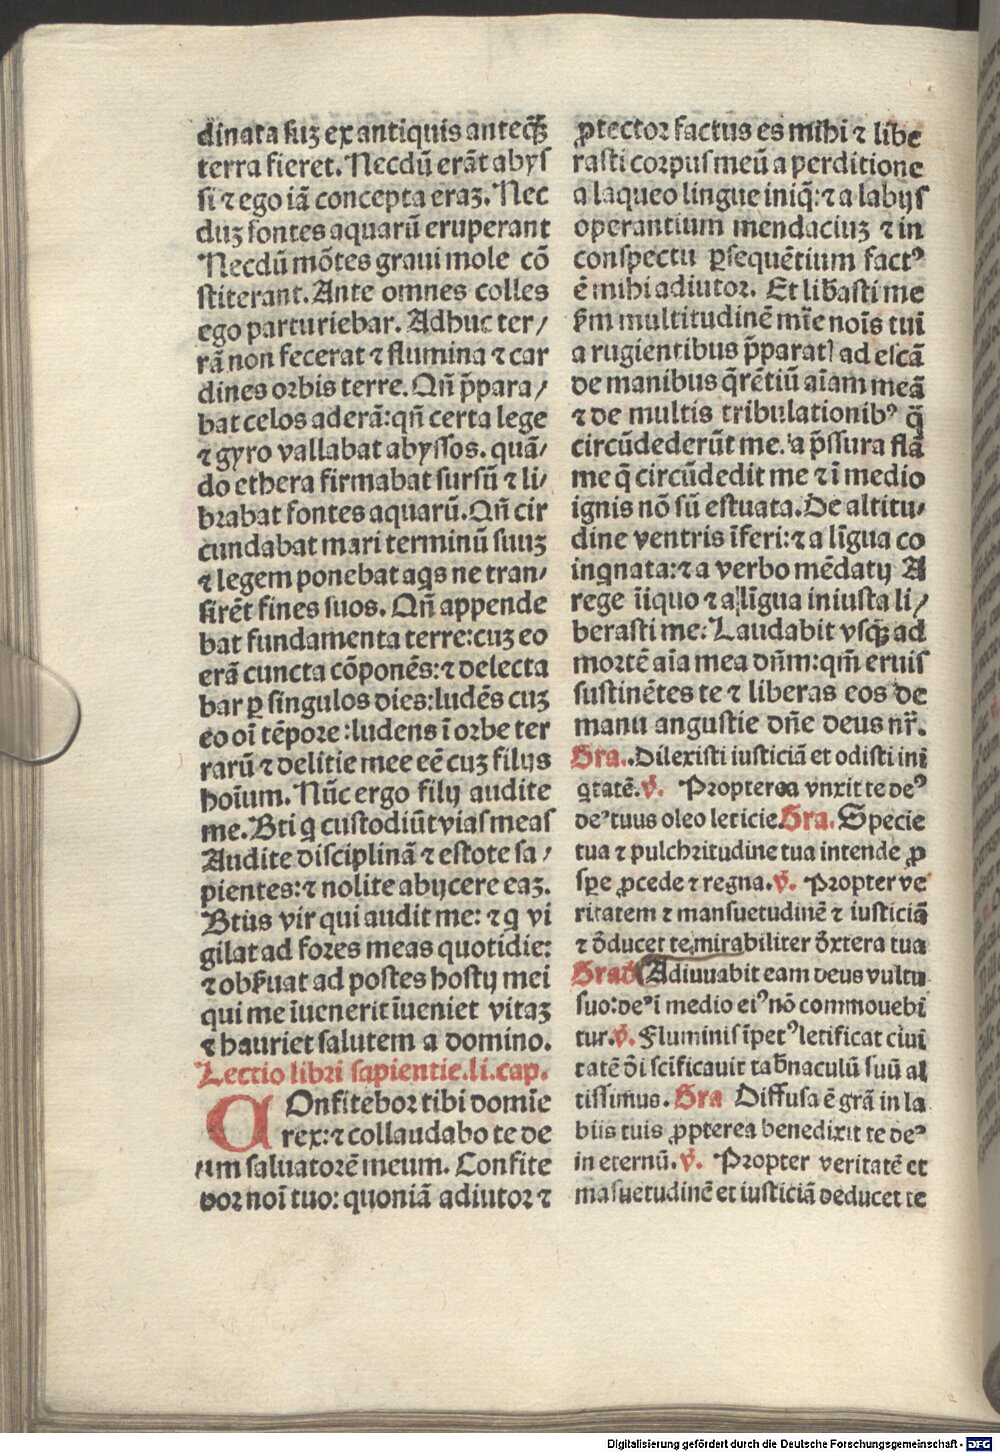 dinata suꝫ ex antiquis anteqꝫ̃
terra fieret. Necdū erāt abys
si ⁊ ego iā concepta eraꝫ. Nec
duꝫ fontes aquarū eruperant
Necdū mōtes graui mole cō
stiterant. Ante omnes colles
ego parturiebar. Adhuc ter/
rā non fecerat ⁊ flumina ⁊ car
dines orbis terre. Qn̄ p̄para/
bat celos aderā: qn̄ certa lege
⁊ gyro vallabat abyssos. quā/
do ethera firmabat sursū ⁊ li/
brabat fontes aquarū. Qn̄ cir
cundabat mari terminū suuꝫ
⁊ legem ponebat aqs ne tran/
sirēt fines suos. Qn̄ appende
bat fundamenta terre: cuꝫ eo
erā cuncta cōponēs: ⁊ delecta
bar ꝑ singulos dies: ludēs cuꝫ
eo oī tēpore: ludens ī orbe ter
rarū ⁊ delitie mee eē cuꝫ filijs
hoīum. Nūc ergo filij audite
me. Bti q custodiūt vias meas
Audite disciplinā ⁊ estote sa/
pientes: ⁊ nolite abijcere eaꝫ.
Btūs vir qui audit me: ⁊ q vi
gilat ad fores meas quotidie:
⁊ obs̄uat ad postes hostij mei
qui me īuenerit īueniet vitaꝫ
⁊ hauriet salutem a domino.
Lectio libri sapientie. li. cap.
COnfitebor tibi domīe
rex: ⁊ collaudabo te de
um saluatorē meum. Confite
bor noī tuo: quoniā adiutor ⁊
ꝓtector factus es mihi ⁊ libe
rasti corpus meū a perditione
a laqueo lingue iniq̄: ⁊ a labijs
operantium mendaciuꝫ ⁊ in
conspectu ꝑsequētium factꝰ
ē mihi adiutor. Et lib̄asti me
s̄m multitudinē mīe noīs tui
a rugientibus p̄paratꝭ ad escā
de manibus q̄rētiū aīam meā
⁊ de multis tribulationibꝰ q̄
circūdederūt me. a p̄ssura flā
me q̄ circūdedit me ⁊ ī medio
ignis nō sū estuata. De altitu/
dine ventris īferi: ⁊ a līgua co
inqnata: ⁊ a verbo mēdatij A
rege īiquo ⁊ a līgua iniusta li/
berasti me: Laudabit vsqꝫ ad
mortē aīa mea dn̄m: qm̄ eruis
sustinētes te ⁊ liberas eos de
manu angustie dn̄e deus nr̄.
Gra. Dilexisti iusticiā et odisti ini
qtatē. v̄. Propterea vnxit te deꝰ
deꝰ tuus oleo leticie Gra. Specie
tua ⁊ pulchritudine tua intende ꝓ
spe ꝓcede ⁊ regna. v̄. Propter ve
ritatem ⁊ mansuetudinē ⁊ iusticiā
⁊ d̄ducet te mirabiliter d̄xtera tua
Grad̄ Adiuuabit eam deus vultu
suo: deꝰ ī medio eiꝰ nō commouebi
tur. v̄. Fluminis īpetꝰ letificat ciui
tatē d̄i sc̄ificauit tab̄naculū suū al
tissimus. Gra Diffusa ē grā in la
biis tuis ꝓpterea benedixit te deꝰ
in eternū. v̄. Propter veritatē et
māsuetudinē et iusticiā deducet te
Digitalisierung gefördert durch die Deutsche Forschungsgemeinschaft - DFG